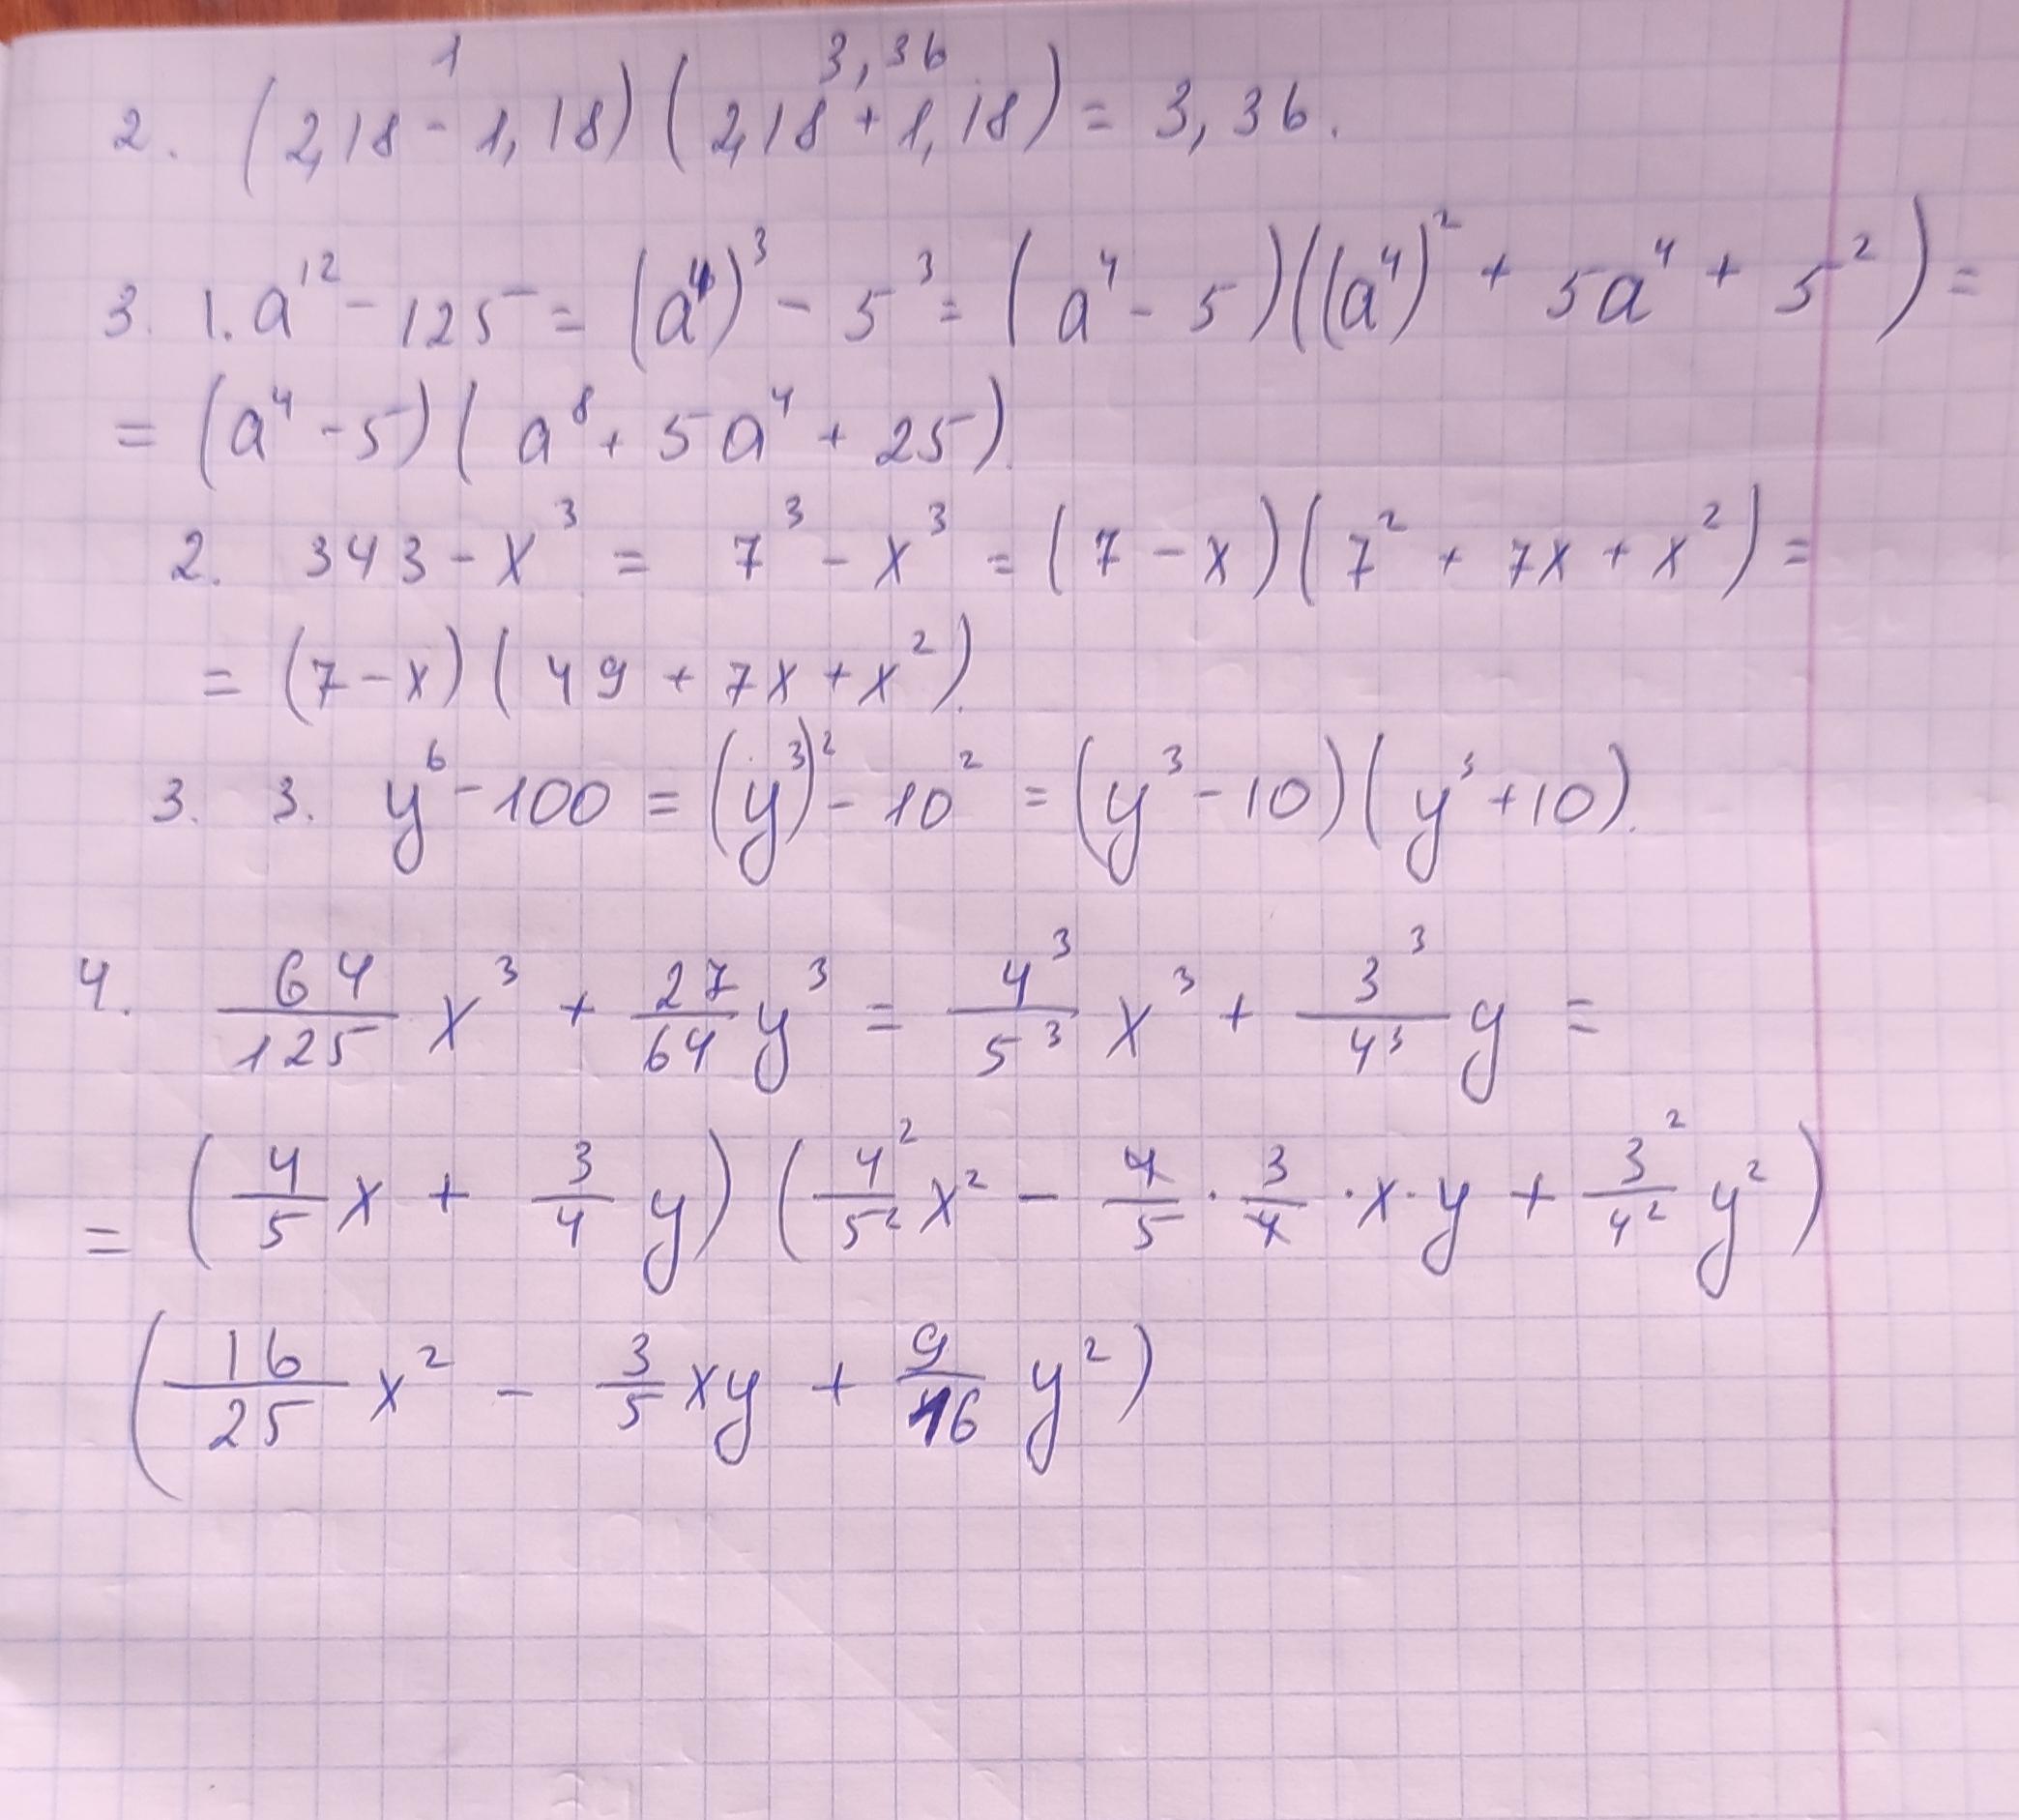 1 3,36
2. (2,18 - 1,18)(2,18 + 1,18) = 3,36.
3. 1. a¹² - 125 = (a⁴)³ - 5³ = (a⁴ - 5)((a⁴)² + 5a⁴ + 5²) =
= (a⁴ - 5)(a⁸ + 5a⁴ + 25).
2. 343 - x³ = 7³ - x³ = (7 - x)(7² + 7x + x²) =
= (7 - x)(49 + 7x + x²).
3. 3. y⁶ - 100 = (y³)² - 10² = (y³ - 10)(y³ + 10).
4. 64/125 x³ + 27/64 y³ = 4³/5³ x³ + 3³/4³ y =
= (4/5 x + 3/4 y)(4²/5² x² - 4/5 · 3/4 · x · y + 3²/4² y²)
(16/25 x² - 3/5 xy + 9/16 y²)